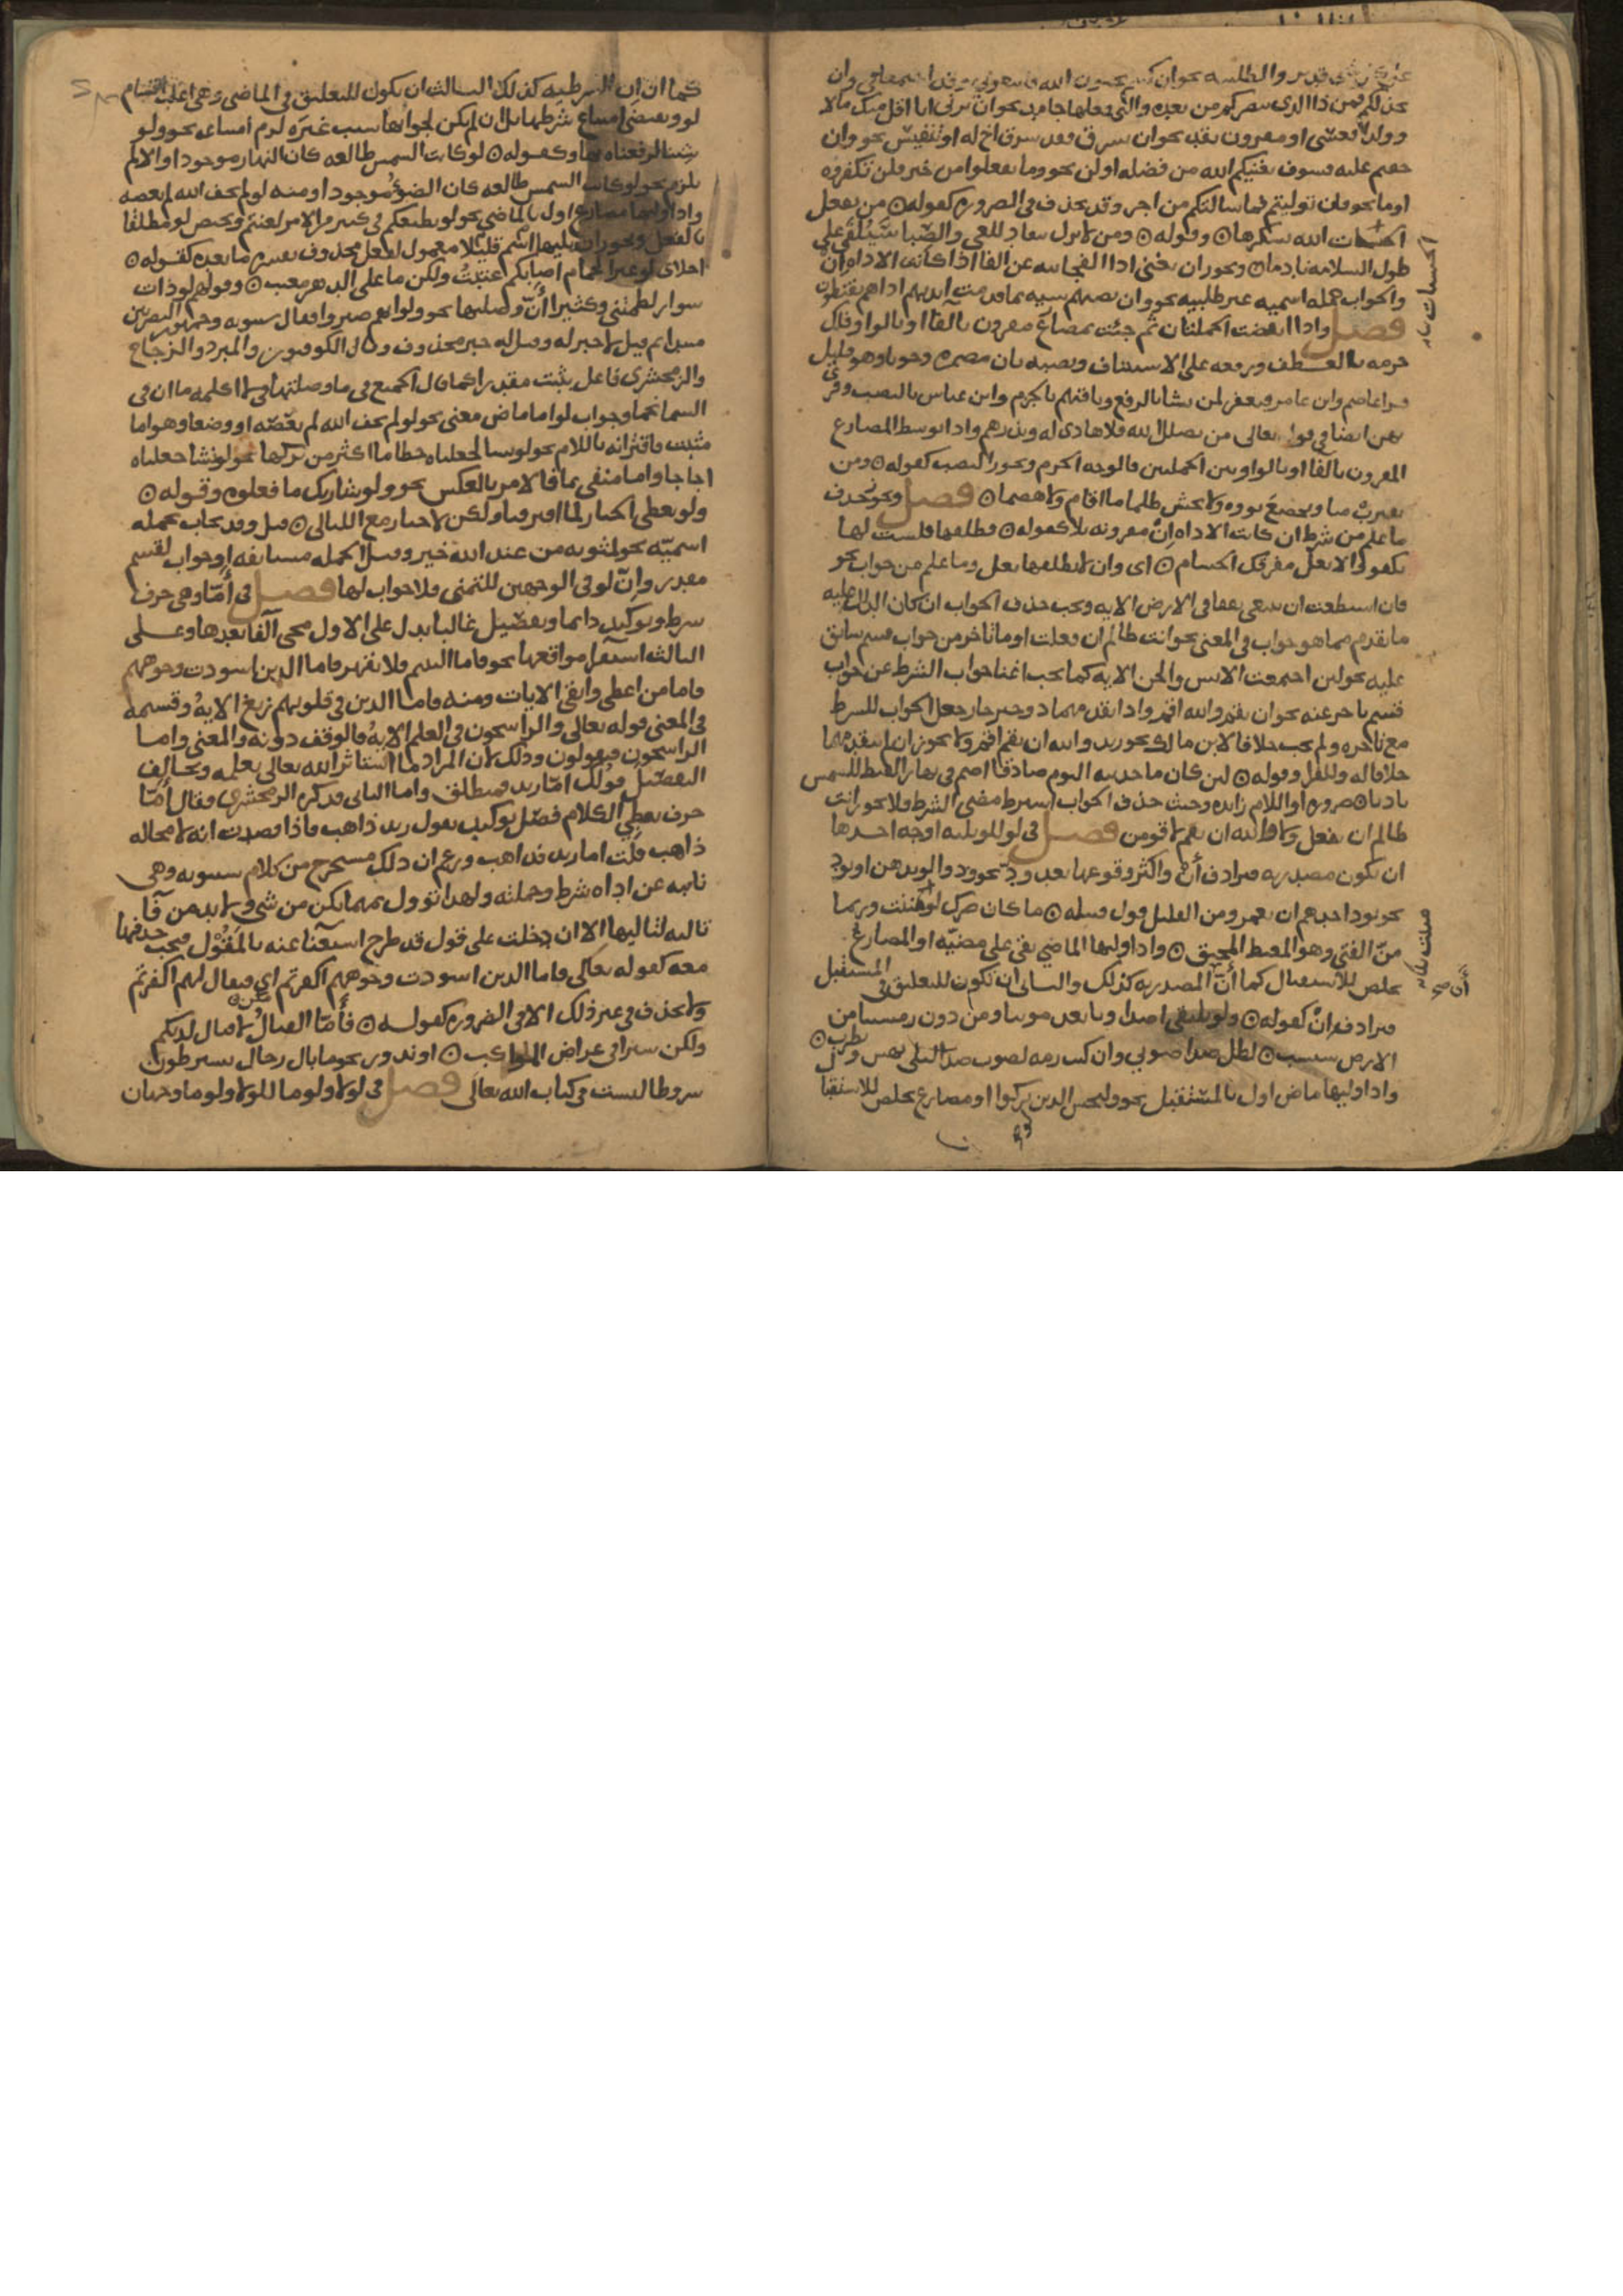 على كل شى قدير والطلبيه نحو ان كنتم تحبون الله فاتبعونى وقد اجتمعا فى وان
يخذلكم فمن ذا الذى ينصركم من بعده والتى فعلها جامد نحو ان ترنى انا اقل منك مالا
وولدا فعسى او مقرون بقد نحو ان يسرق فقد سرق اخ له او تنفيس نحو وان
خفتم عيله فسوف يغنيكم الله من فضله او لن نحو وما يفعلوا من خير فلن تكفروه
او ما نحو فان توليتم فما سالتكم من اجر وقد يحذف فى الضروره كقوله من يفعل
الحسنات الله يشكرها وقوله ومن لا يزل ينقاد للغى والصبا سيلفى على
طول السلامه نادما ويجوز ان يغنى اذا الفجائيه عن الفا اذا كانت الاداه ان
والجواب جمله اسميه غير طلبيه نحو وان تصبهم سييه بما قدمت ايديهم اذا هم يقنطون
فصل واذا انقضت الجملتان ثم جئت بمضارع مقرون بالفا او بالواو فلك
جزمه بالعطف ورفعه على الاستئناف ونصبه بان مضمره وجوبا وهو قليل
قرا عاصم وابن عامر فيغفر لمن يشا بالرفع وباقيهم بالجزم وابن عباس بالنصب وقرى
بهن ايضا فى قوله تعالى من يضلل الله فلا هادى له ويذرهم واذا توسط المضارع
المقرون بالفا او بالواو بين الجملتين فالوجه الجزم ويجوز النصب كقوله ومن
يقترب منا ويخضع نووه ولا يخش ظلما ما اقام ولا هضما فصل ويجوز حذف
ما علم من شرط ان كانت الاداه ان مقرونه بلا كقوله فطلقها فلست لها
بكفو والا يعل مفرقك الحسام اى وان لا تطلقها يعل وما علم من جواب نحو
فان استطعت ان تبتغى نفقا فى الارض الايه ويجب حذف الجواب ان كان الدال عليه
ما تقدم مما هو جواب فى المعنى نحو انت ظالم ان فعلت او ما تاخر من جواب قسم سابق
عليه نحو لئن اجتمعت الانس والجن الايه كما يجب اغنا جواب الشرط عن جواب
قسم تاخر عنه نحو ان تقم والله اقم واذا تقدمهما ذو خبر جاز جعل الجواب للشرط
مع تاخره ولم يجب خلافا لابن مالك نحو زيد والله ان يقم اقم ولا يجوز ان لم يتقدمهما
خلافا له وللفرا وقوله لئن كان ما حدثته اليوم صادقا اصم فى نهار القيظ للشمس
باديا ضروره او اللام زائده وحيث حذف الجواب اشترط مضى الشرط فلا يجوز انت
ظالم ان تفعل ولا والله ان تقم لاقومن فصل فى لو للو ثلثه اوجه احدها
ان تكون مصدريه فترادف أن واكثر وقوعها بعد ود نحو ودوا لو تدهن او يود
نحو يود احدهم ان يعمر ومن القليل قول قتيله ما كان ضرك لو مننت وربما
من الفتى وهو المغيظ المحنق واذا وليها الماضى بقى على مضيه او المضارع
تخلص للاستقبال كما أن المصدريه كذلك والثانى ان تكون للتعليق فى المستقبل
فترادف إن كقوله ولو تلتقى اصداونا بعد موتنا ومن دون رمسينا من
الارض سبسب لظل صدا صوتى وان كنت رمه لصوت صدا ليلى يهش ويطرب
واذا وليها ماض اول بالمستقبل نحو وليخش الذين لو تركوا او مضارع تخلص للاستقبال
كما ان ان الشرطيه كذلك الثالث ان تكون للتعليق فى الماضى وهى اغلب اقسام
لو ويقتضى امتناع شرطها ثم ان لم يكن لجوابها سبب غيره لزم امتناعه نحو ولو
شئنا لرفعناه بها وكقوله لو كانت الشمس طالعه كان النهار موجودا والا لم
يلزم نحو لو كانت الشمس طالعه كان الضوء موجودا ومنه لو لم يخف الله لم يعصه
واذا وليها مضارع اول بالماضى نحو لو يطيعكم فى كثير من الامر لعنتم وتختص لو مطلقا
بالفعل ويجوز ان يليها اسم قليلا معمول لفعل محذوف يفسره ما بعده كقوله
اخلاى لو غير الحمام اصابكم عتبت ولكن ما على الدهر معتب وقولهم لو ذات
سوار لطمتنى وكثيرا أن وصلتها نحو ولو انهم صبروا فقال سيبويه وجمهور البصريين
مبتدا ثم قيل لا خبر له وقيل له خبر محذوف وقال الكوفيون والمبرد والزجاج
والزمخشرى فاعل بثبت مقدرا كما قال الجميع فى ما وصلتها فى لا اكلمه ما ان فى
السما نجما وجواب لو اما ماض معنى نحو لو لم يخف الله لم يعصه او وضعا وهو اما
مثبت فاقترانه باللام نحو لو نشا لجعلناه حطاما اكثر من تركها نحو لو نشا جعلناه
اجاجا واما منفى بما فالامر بالعكس نحو ولو شا ربك ما فعلوه وقوله
ولو نعطى الخيار لما افترقنا ولكن لا خيار مع الليالى قيل وقد تجاب بجمله
اسميه نحو لمثوبه من عند الله خير وقيل الجمله مستانفه او جواب لقسم
مقدر وإن لو فى الوجهين للتمنى فلا جواب لها فصل فى أما وهى حرف
شرط وتوكيد دائما وتفصيل غالبا يدل على الاول مجى الفا بعدها وعلى
الثالث استقرا مواقعها نحو فاما اليتيم فلا تقهر فاما الذين اسودت وجوههم
فاما من اعطى واتقى الايات ومنه فاما الذين فى قلوبهم زيغ الايه وقسيمه
فى المعنى قوله تعالى والراسخون فى العلم الايه فالوقف دونه والمعنى واما
الراسخون فيقولون وذلك لان المراد ما استاثر الله تعالى بعلمه وتخالف
التفصيل قولك اما زيد فمنطلق واما الثانى فذكره الزمخشرى فقال أما
حرف يعطى الكلام فضل توكيد تقول زيد ذاهب فاذا قصدت انه لا محاله
ذاهب قلت اما زيد فذاهب وزعم ان ذلك مستخرج من كلام سيبويه وهى
نائبه عن اداه شرط وجملته ولهذا تؤول بمهما يكن من شى ولا بد من فا
تاليه لتاليها الا ان دخلت على قول قد طرح استغنا عنه بالمقول فيجب حذفها
معه كقوله تعالى فاما الذين اسودت وجوههم اكفرتم اى فيقال لهم اكفرتم
ولا تحذف فى غير ذلك الا فى الضروره كقوله فأما القتال لا قتال لديكم
ولكن سيرا فى عراض المواكب او ندور نحو ما بال رجال يشترطون
شروطا ليست فى كتاب الله تعالى فصل فى لولا ولوما للولا ولوما وجهان